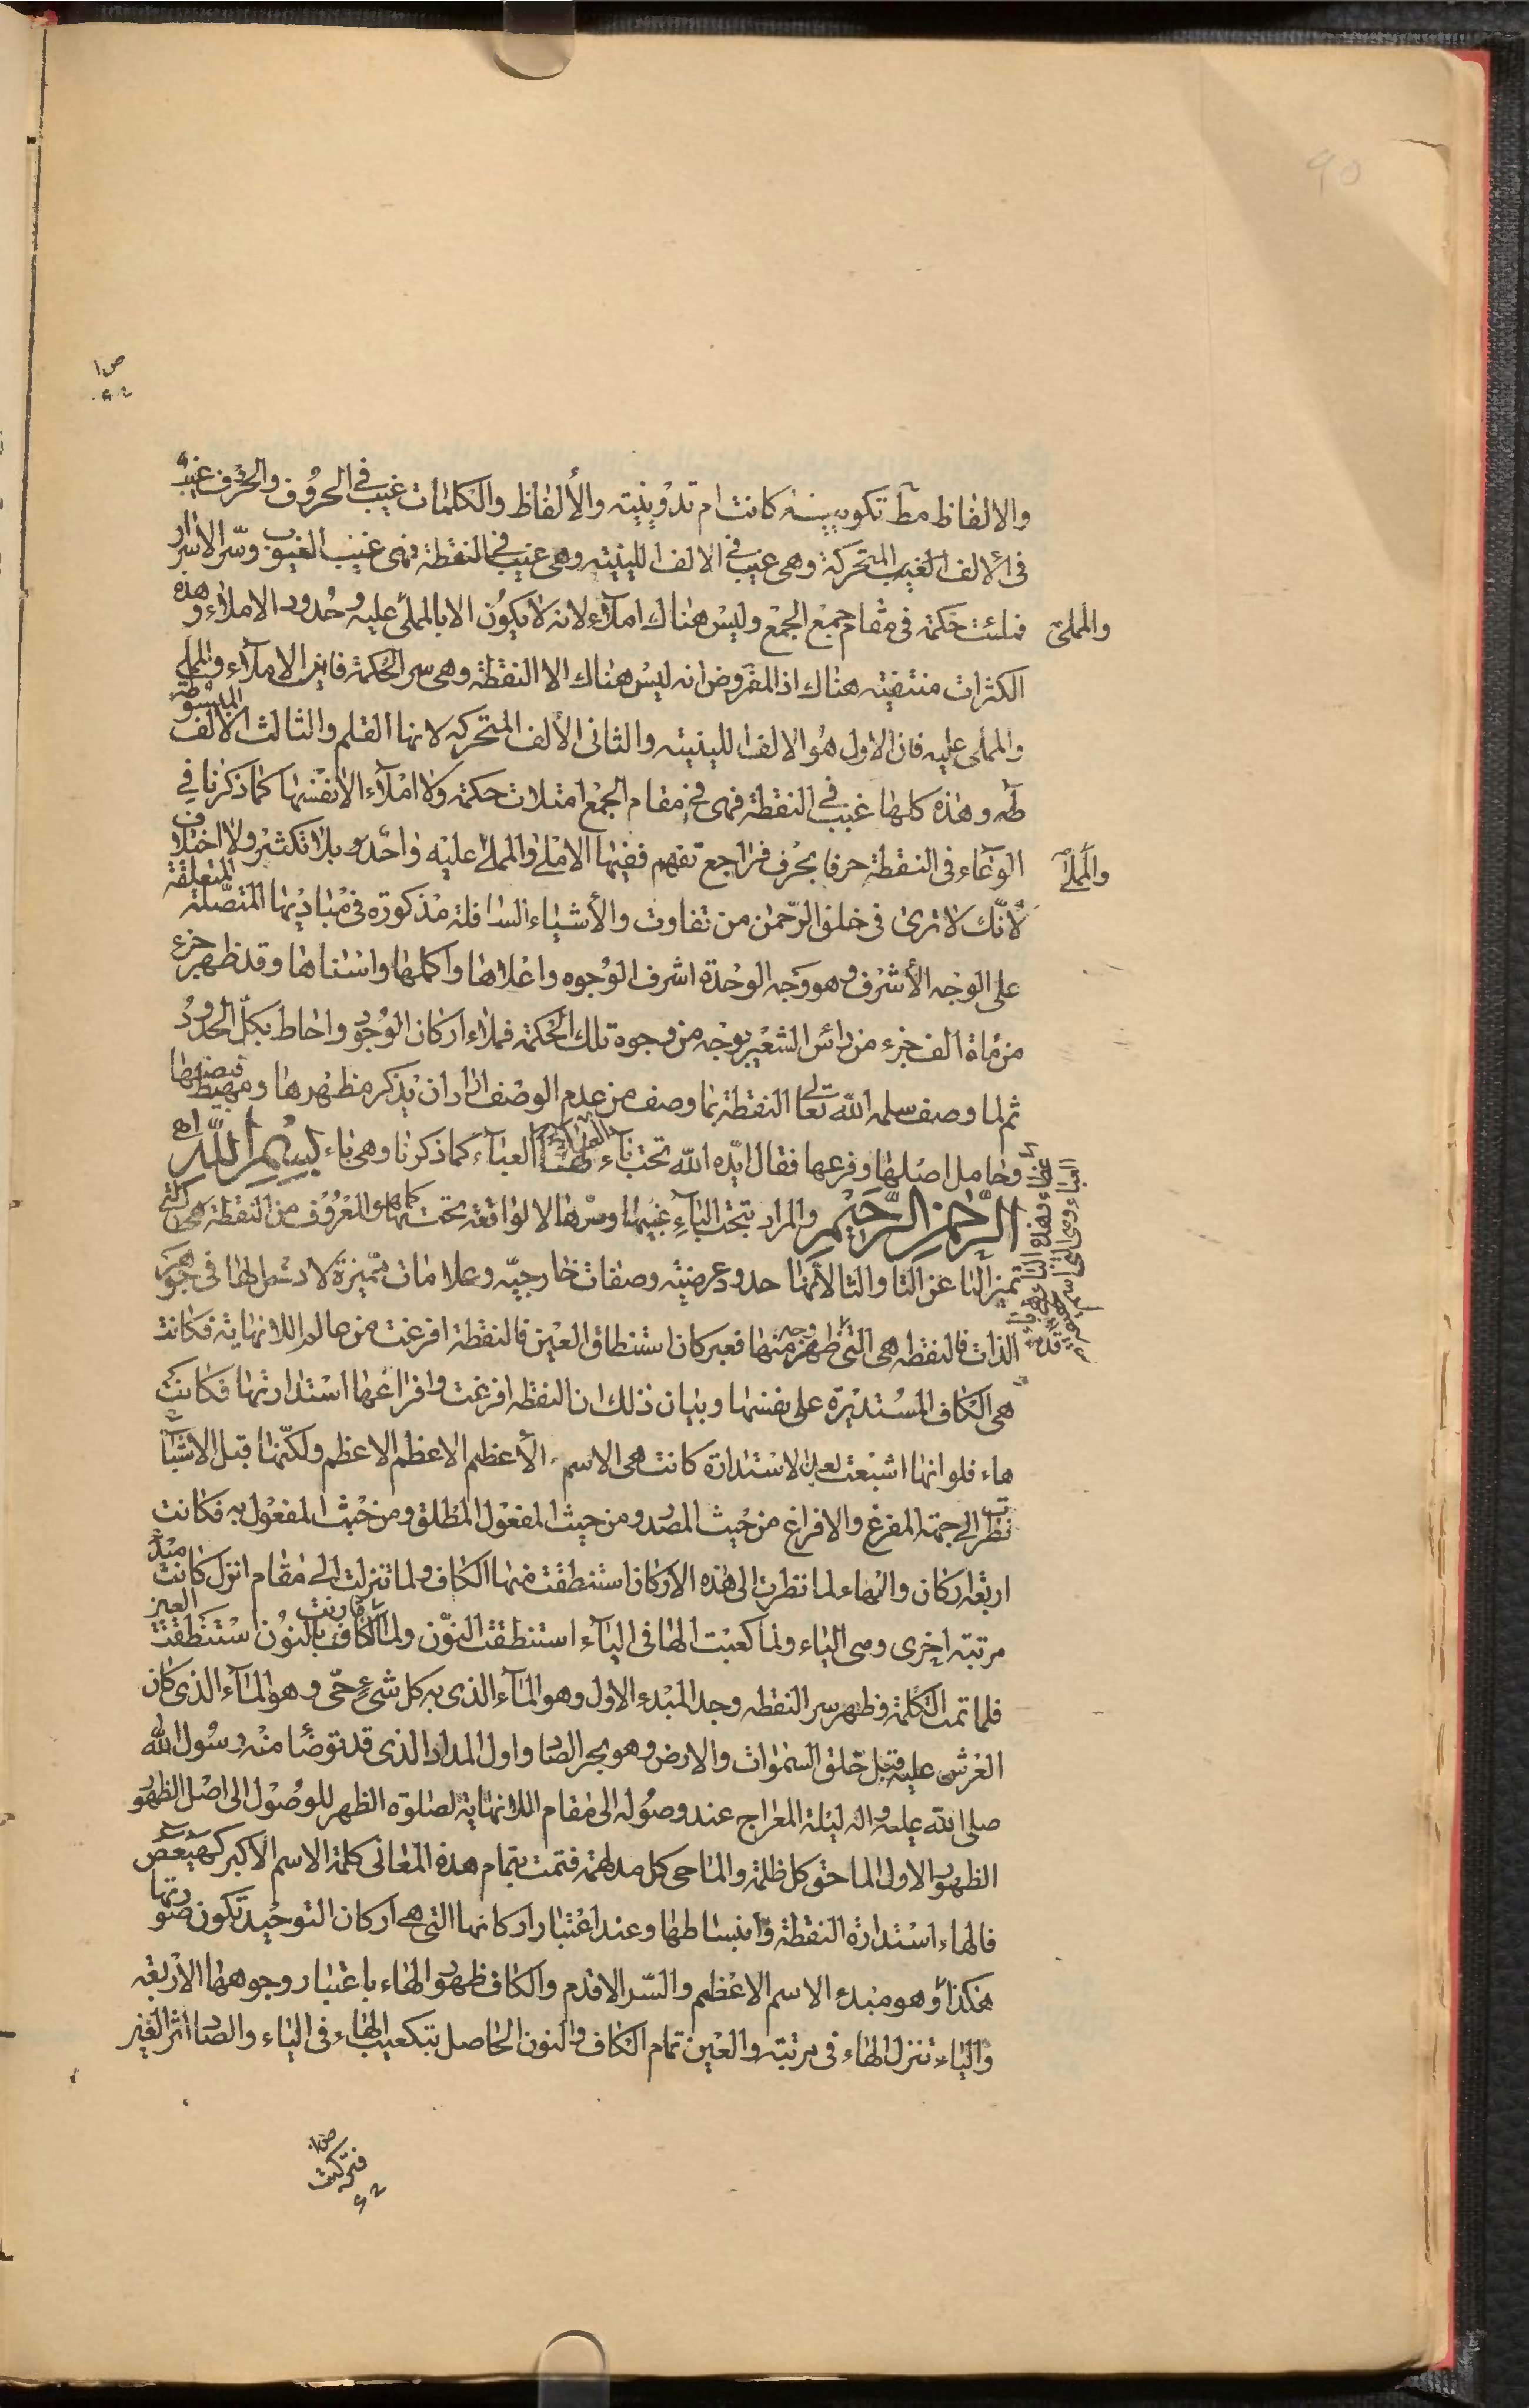 90
ص۱
والالفاظ مط تكوينية كانت ام تدوينية والألفاظ والكلمات غيب في الحروف والحروف غيب
في الألف الغيب المتحركة وهي غيب في الالف اللينية وهي غيب في النقطة فهي غيب الغيوب وسر الاسرار
فملئت حكمة في مقام جمع الجمع وليس هناك املآء لانه لا يكون الا بالمملى عليه وحدود الاملاء وهذه
والمملى
الكثرات منتفية هناك اذ المفروض انه ليس هناك الا النقطة وهي سر الحكمة فاين الاملآء والمملى
والمملى عليه فان الاول هو الالف اللينية والثاني الألف المتحركة لانها القلم والثالث الالف المبسوطة
طه وهذه كلها غيب في النقطة فهي في مقام الجمع امتلات حكمة ولا املآء الا نفسها كما ذكرنا في
الوعاء في النقطة حرفا بحرف فراجع تفهم ففيها الاملى والمملى عليه واحد وبلا تكثر ولا اختلاف
والمملأ
لانّك لا ترى في خلق الرّحمن من تفاوت والأشياء السافلة مذكورة في مباديها المتصلة المتعلقة
على الوجه الأشرف وهو وجه الوحدة اشرف الوجوه واعلاها واكملها واسناها وقد ظهر جزء
من مأة الف جزء من رائس الشعير بوجه من وجوه تلك الحكمة فملاء اركان الوجود واحاط بكل الحدود
ثم لما وصف سلمه الله تعالى النقطة بما وصف من عدم الوصف اراد ان يذكر مظهرها ومهبط فيضها
وحامل اصلها وفرعها فقال ايّده الله تحت بآء العمآء كما ذكرنا وهي باء بسم الله اه
الرّحمن الرّحيم والمراد بتحت البآء غيبها وسرها لا لواقعة تحتها كما هو المعروف من النقطة هي التي
تميز البا عن التا والثا لانها حدود عرضية وصفات خارجيّه وعلامات مميزة لا دخل لها في جوهر
الذات فالنقطه هي التي ظهر منها فعبر كان استنطاق العين فالنقطة افرغت من عالم اللانهاية فكانت
هي الكاف المستديرة على نفسها وبيان ذلك ان النقطه افرغت وافراغها استدارتها فكانت
هاء فلو انها اشبعت بعد الاستدارة كانت هي الاسم الأعظم الاعظم الاعظم ولكنّها قبل الاشباع
نظر الى جهة المفرغ والافراغ من حيث المصدر ومن حيث المفعول المطلق ومن حيث المفعول به فكانت
اربعة اركان والهاء لما نظرت الى هذه الاركان استنطقت منها الكاف ولما تنزلت الى مقام انزل كانت مبدأ
مرتبة اخرى وهي الياء ولما كعبت الها في اليآء استنطقت النوّن ولما قارنت الكاف بالنون استنطقت العين
فلما تمت الكلمة وظهر سر النقطه وجد المبدء الاول وهو المآء الذي به كل شيءٍ حيّ وهو المآء الذي كان
العرش عليه قبل خلق السموات والارض وهو بحر الصاد واول المداد الذي قد توضأ منه رسول الله
صلى الله عليه واله ليلة المعراج عند وصوله الى مقام اللانهاية لصلوة الظهر للوصول الى اصل الظهور
الظهور الاول الماحق كل ظلمة والماحي كل مدلهمة فتمت بتمام هذه المعاني كلمة الاسم الاكبر كهيعص
فالهاء استدارة النقطة وانبساطها وعند اعتبار اركانها التي هي اركان التوحيد تكون صورتها
هكذا وهو مبدء الاسم الاعظم والسّر الاقدم والكاف ظهور الهاء باعتبار وجوهها الاربعة
والياء تنزل الهاء في مرتبة والعين تمام الكاف والنون الحاصل بتكعيب الهاء في الياء والصاد اثر العين
ص۱
فتركت